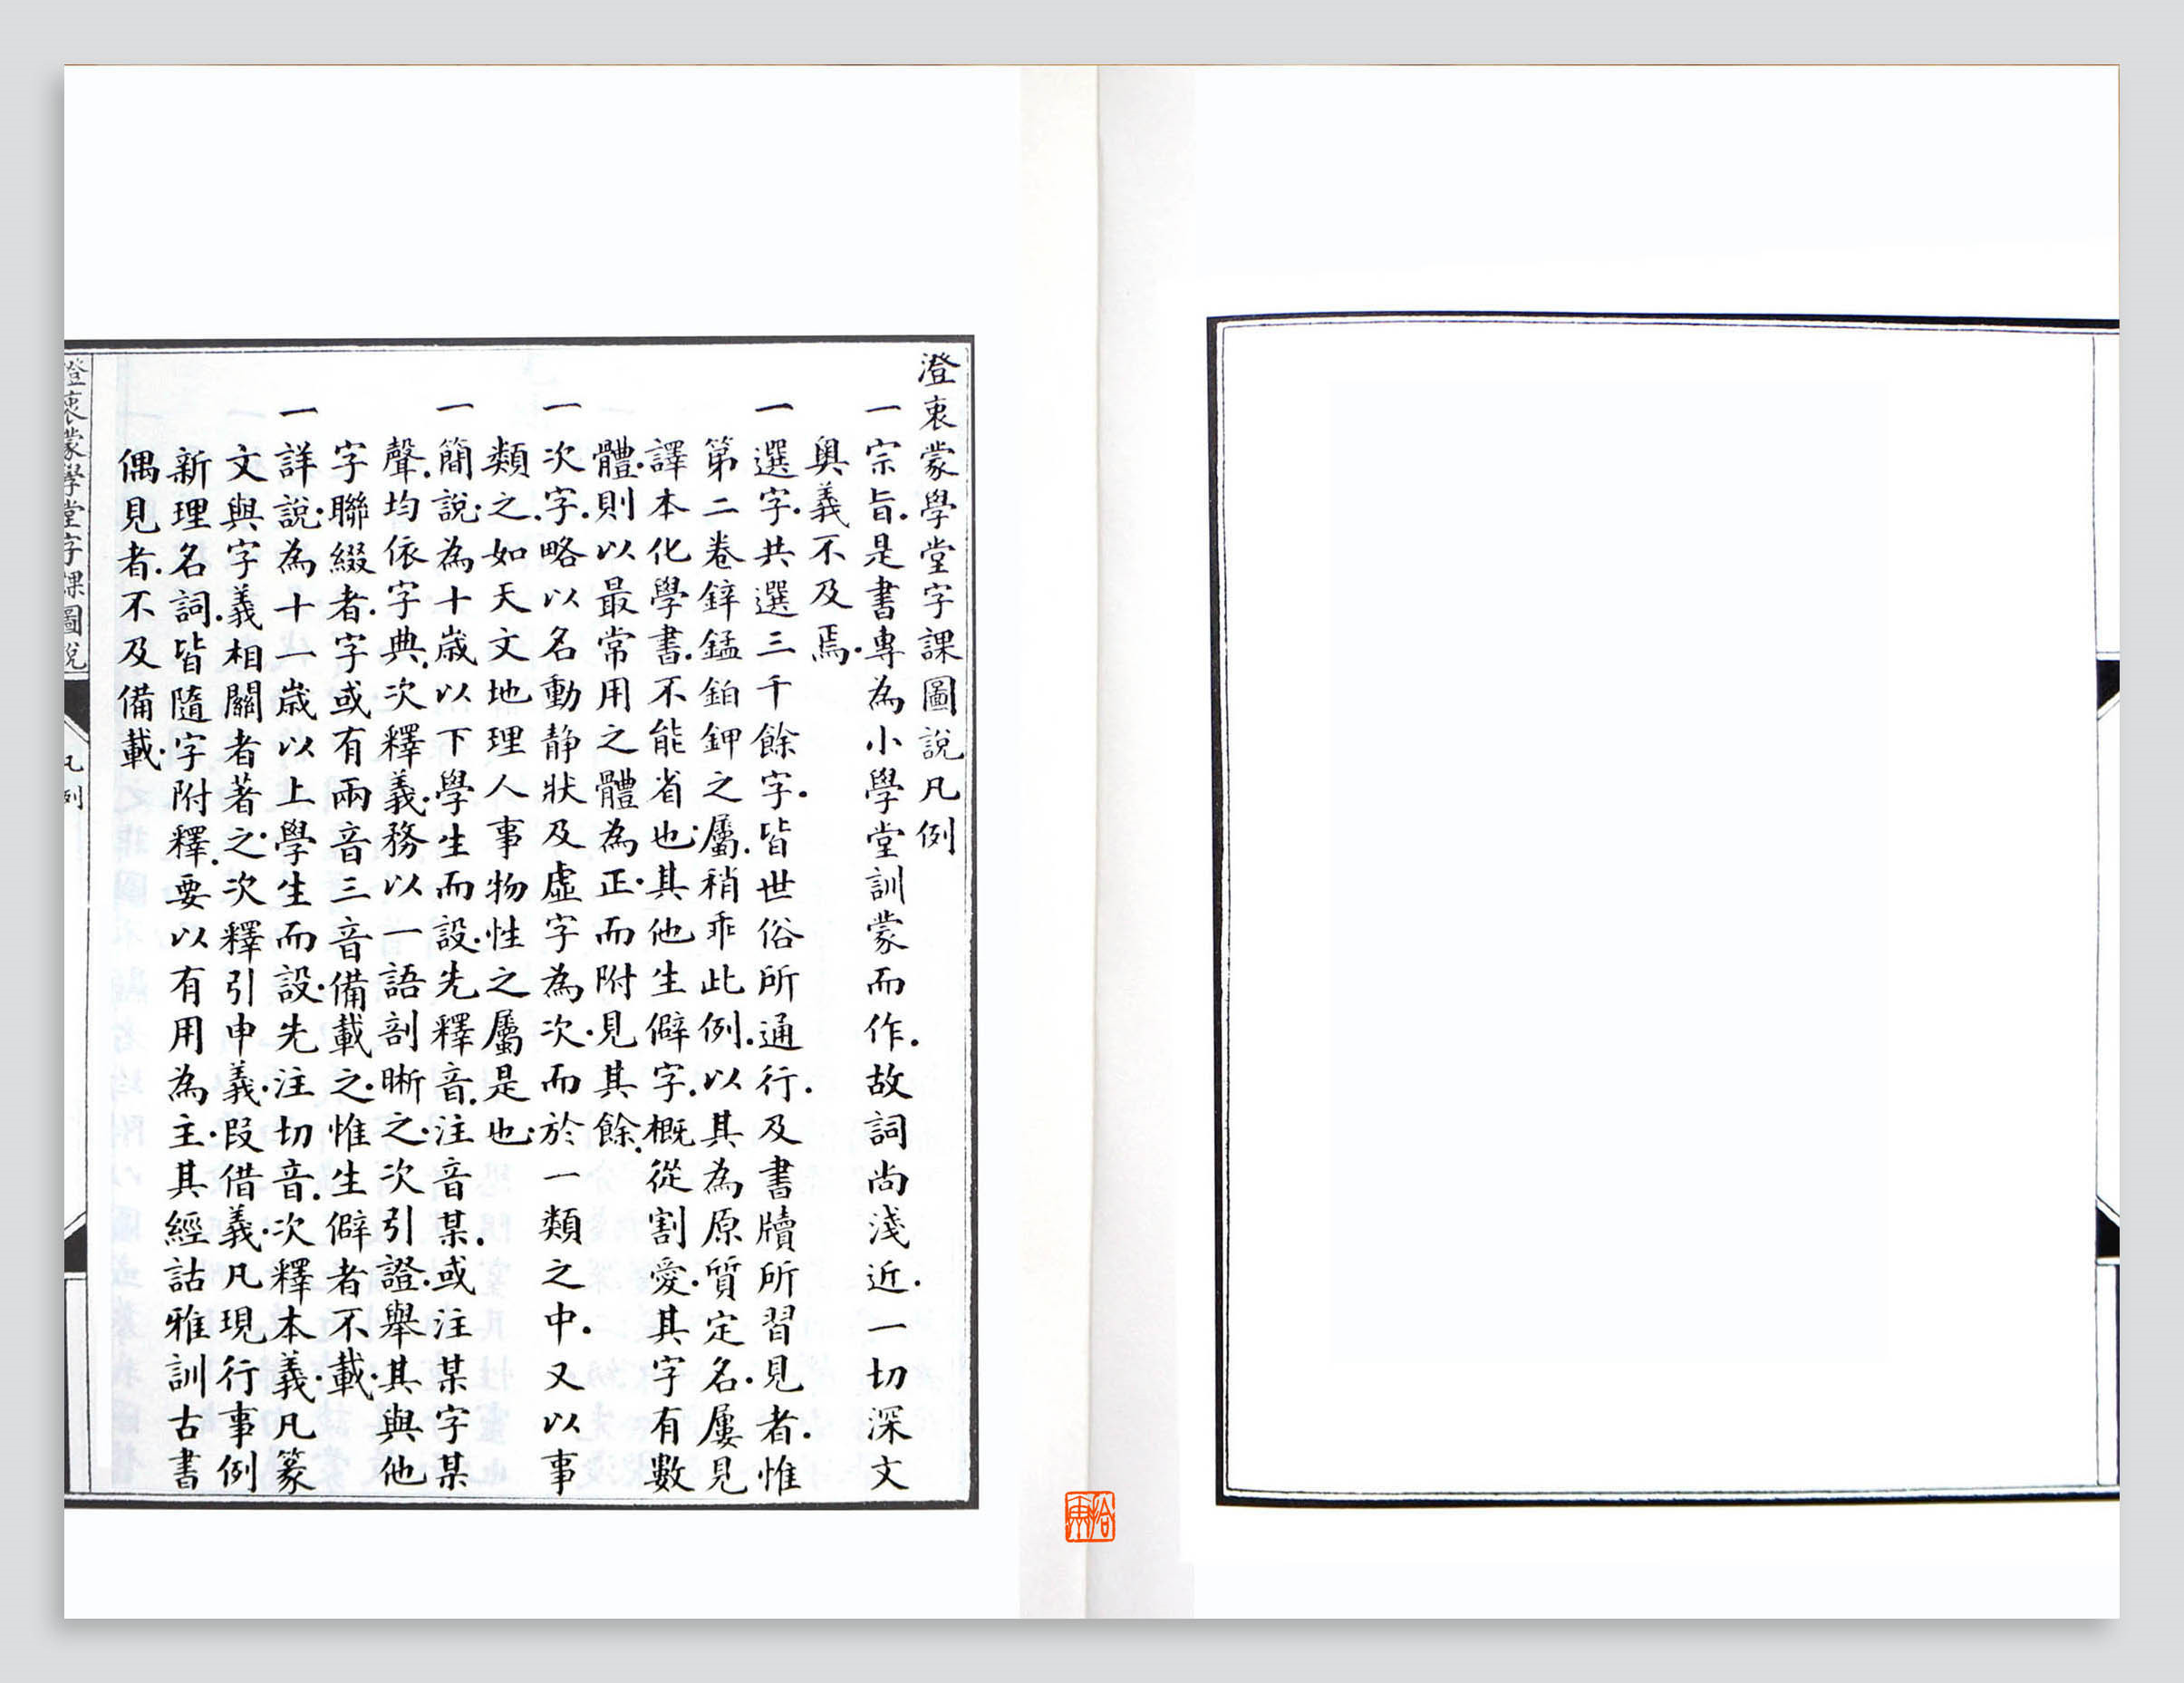 澄衷蒙學堂字課圖說凡例
一宗旨.是書專為小學堂訓蒙而作.故詞尚淺近.一切深文
奧義不及焉.
一選字.共選三千餘字.皆世俗所通行.及書牘所習見者.惟
第二卷鋅錳鉑鉀之屬.稍乖此例.以其為原質定名.屢見
譯本化學書.不能省也.其他生僻字.概從割愛.其字有數
體.則以最常用之體為正.而附見其餘.
一次字.略以名動静狀及虛字為次.而於一類之中.又以事
類之.如天文地理人事物性之屬是也.
一簡說.為十歲以下學生而設.先釋音.注音某.或注某字某
聲.均依字典.次釋義.務以一語剖晰之.次引證.舉其與他
字聯綴者.字或有兩音三音備載之.惟生僻者不載.
一詳說.為十一歲以上學生而設.先注切音.次釋本義.凡篆
文與字義相關者著之.次釋引申義.叚借義.凡現行事例
新理名詞.皆隨字附釋.要以有用為主.其經詁雅訓古書
偶見者.不及備載.
澄衷蒙學堂字課圖說
凡例